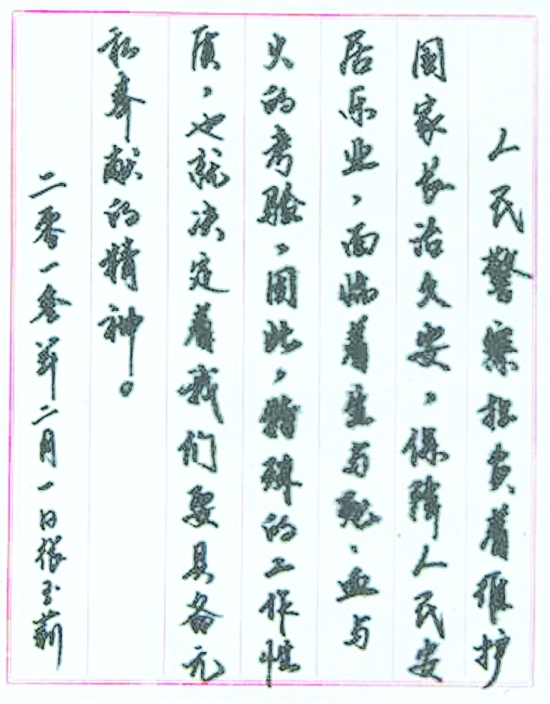 人民警察担负着维护
国家长治久安，保障人民安
居乐业，面临着生与死、血与
火的考验。因此，特殊的工作性
质，也就决定着我们要具备无
私奉献的精神。
二零一叁年二月一日张玉